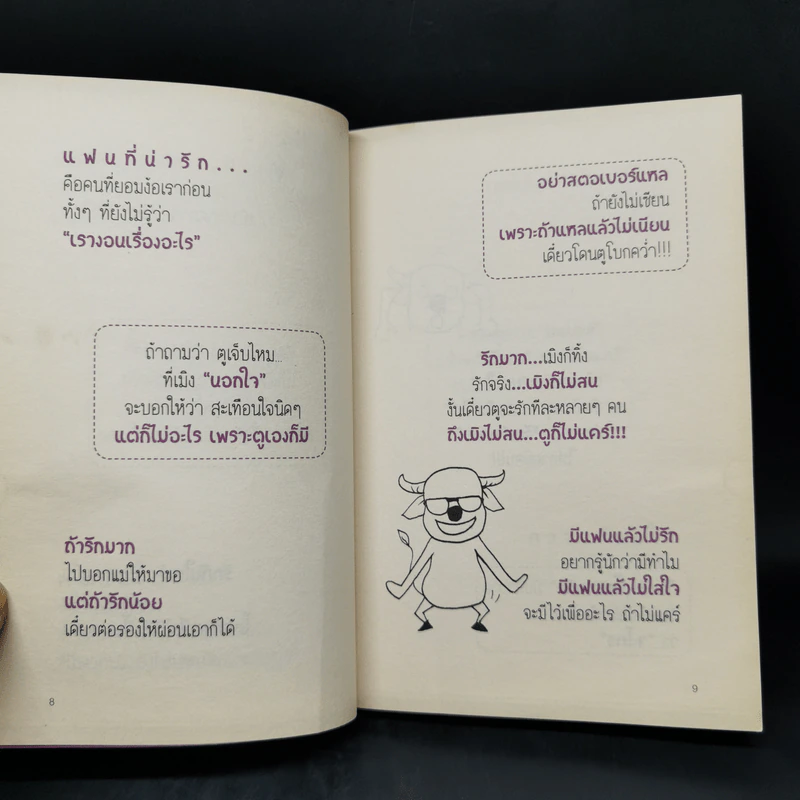 แฟนที่น่ารัก...
คือคนที่ยอมง้อเราก่อน
ทั้งๆ ที่ยังไม่รู้ว่า
“เรางอนเรื่องอะไร”
ถ้าถามว่า ตูเจ็บไหม...
ที่เมิง “นอกใจ”
จะบอกให้ว่า สะเทือนใจนิดๆ
แต่ก็ไม่อะไร เพราะตูเองก็มี
ถ้ารักมาก
ไปบอกแม่ให้มาขอ
แต่ถ้ารักน้อย
เดี๋ยวต่อรองให้ผ่อนเอาก็ได้
8
อย่าสตอเบอร์แหล
ถ้ายังไม่เซียน
เพราะถ้าแหลแล้วไม่เนียน
เดี๋ยวโดนตูโบกคว่ำ!!!
รักมาก...เมิงก็ทิ้ง
รักจริง...เมิงก็ไม่สน
งั้นเดี๋ยวตูจะรักทีละหลายๆ คน
ถึงเมิงไม่สน...ตูก็ไม่แคร์!!!
มีแฟนแล้วไม่รัก
อยากรู้นักว่ามีทำไม
มีแฟนแล้วไม่ใส่ใจ
จะมีไว้เพื่ออะไร ถ้าไม่แคร์
9